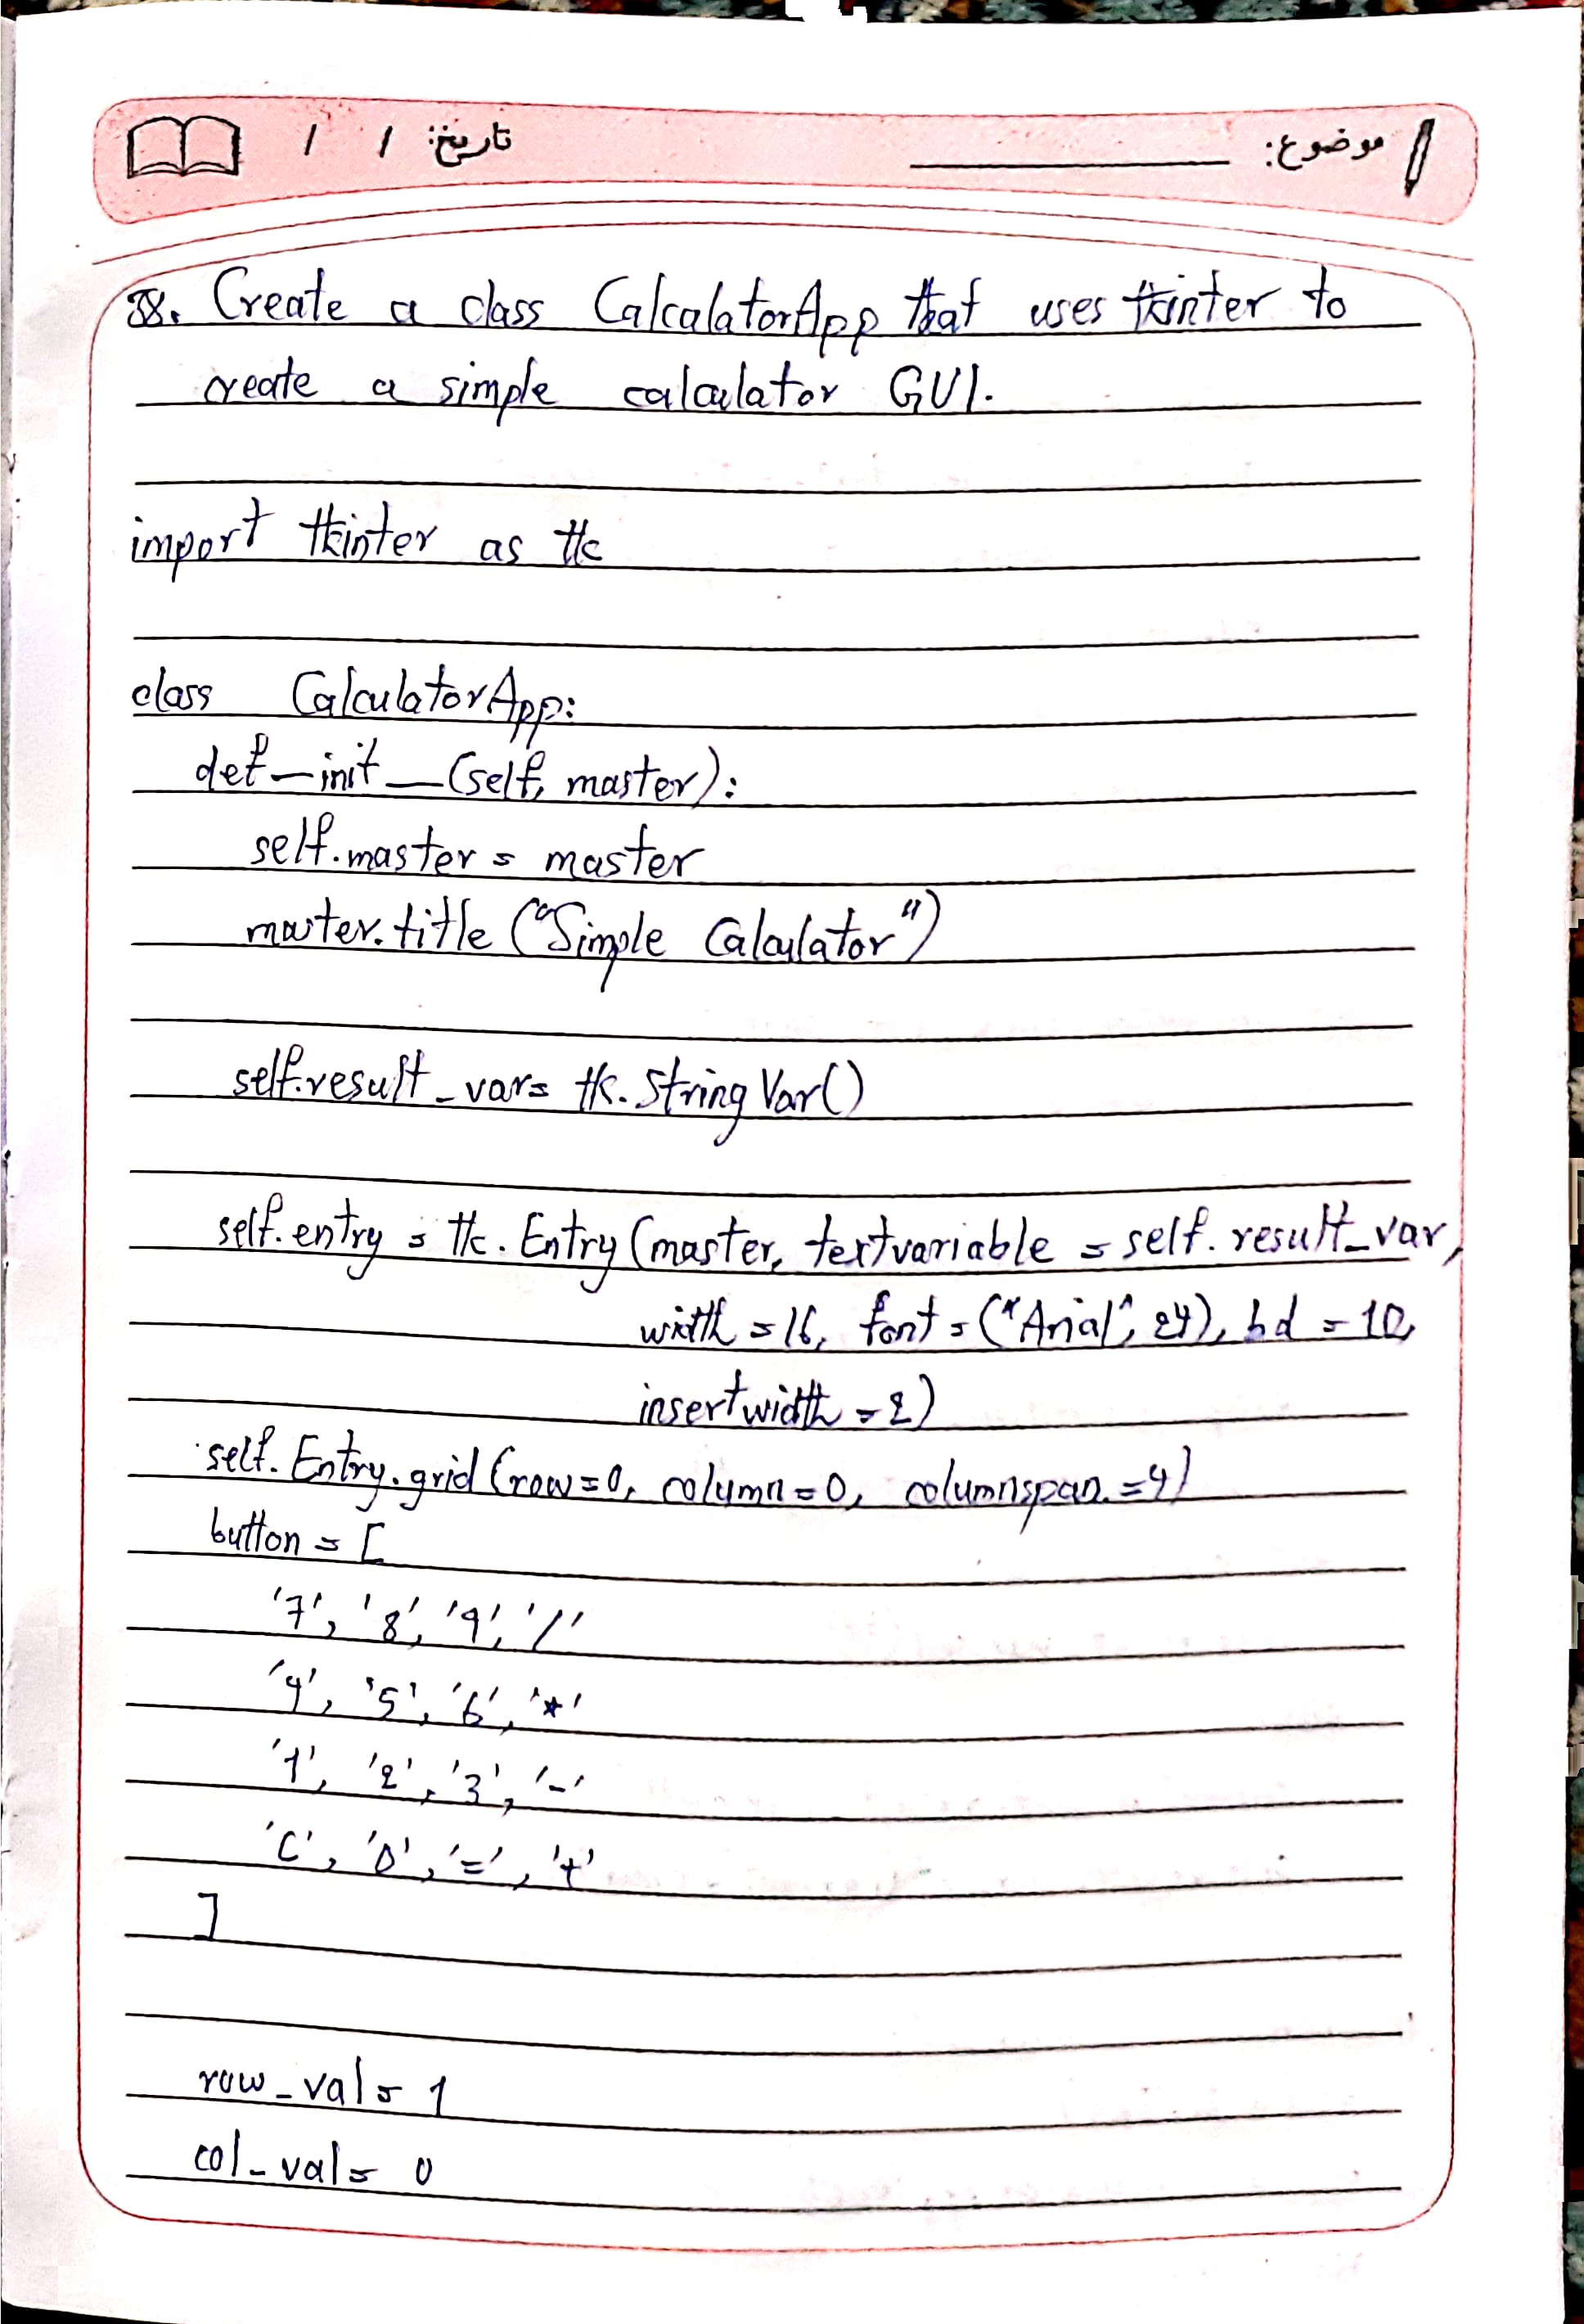 موضوع: تاریخ: / /
38. Create a class CalcalatorApp that uses tkinter to
create a simple calculator GUI.
import tkinter as tk
class CalculatorApp:
def __init__(self, master):
self.master = master
master.title ("Simple Calculator")
self.result_var = tk.StringVar()
self.entry = tk.Entry (master, textvariable = self.result_var,
width = 16, font = ("Arial", 24), bd = 10,
insertwidth = 2)
self.Entry.grid (row=0, column=0, columnspan=4)
button = [
'7', '8', '9', '/'
'4', '5', '6', '*'
'1', '2', '3', '-'
'C', '0', '=', '+'
]
row_val = 1
col_val = 0